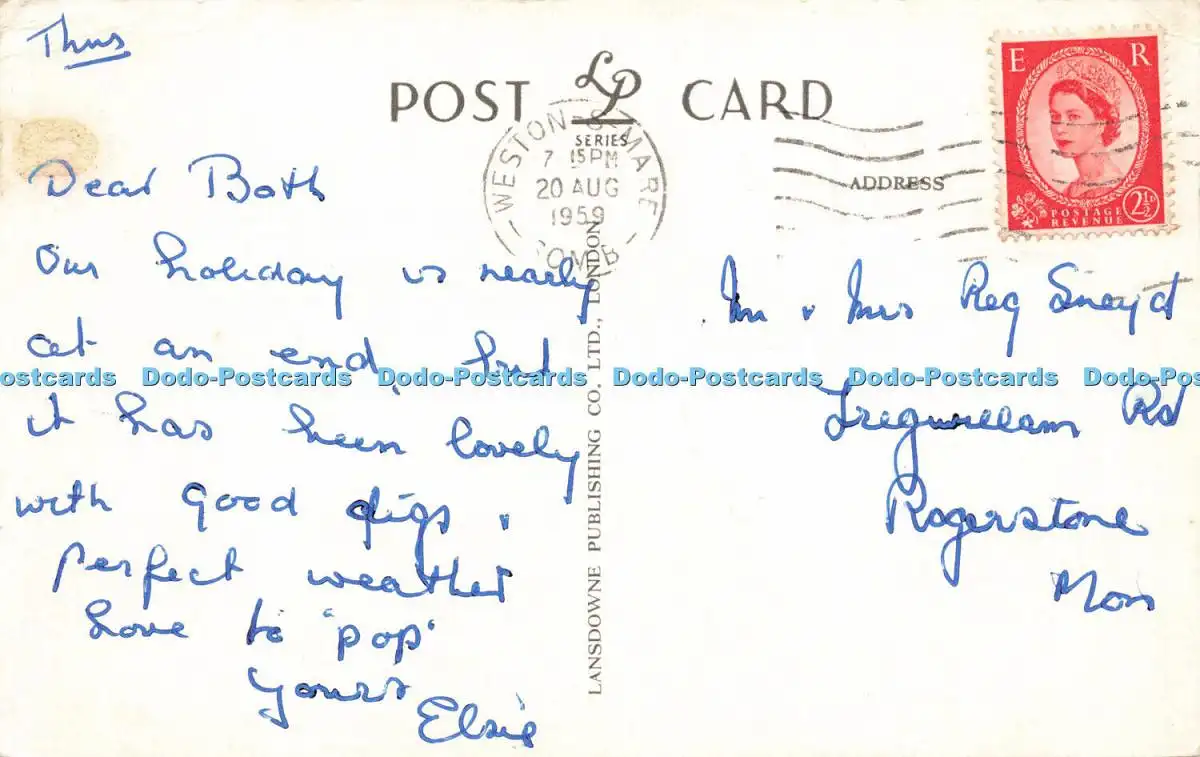 Thurs
POST CARD
LP
SERIES
WESTON-S-MARE
7 15PM
20 AUG
1959
SOM. B
E R
POSTAGE
REVENUE
2½D
ADDRESS
Dear Both
Our holiday is nearly
at an end, but
it has been lovely
with good digs &
perfect weather
Love to "pop"
Yours
Elsie
LANSDOWNE PUBLISHING CO. LTD., LONDON
Mr & Mrs Reg Sneyd
Tregwilliam Rd
Rogerstone
Mon
ostcards Dodo-Postcards Dodo-Postcards Dodo-Postcards Dodo-Postcards Dodo-Post